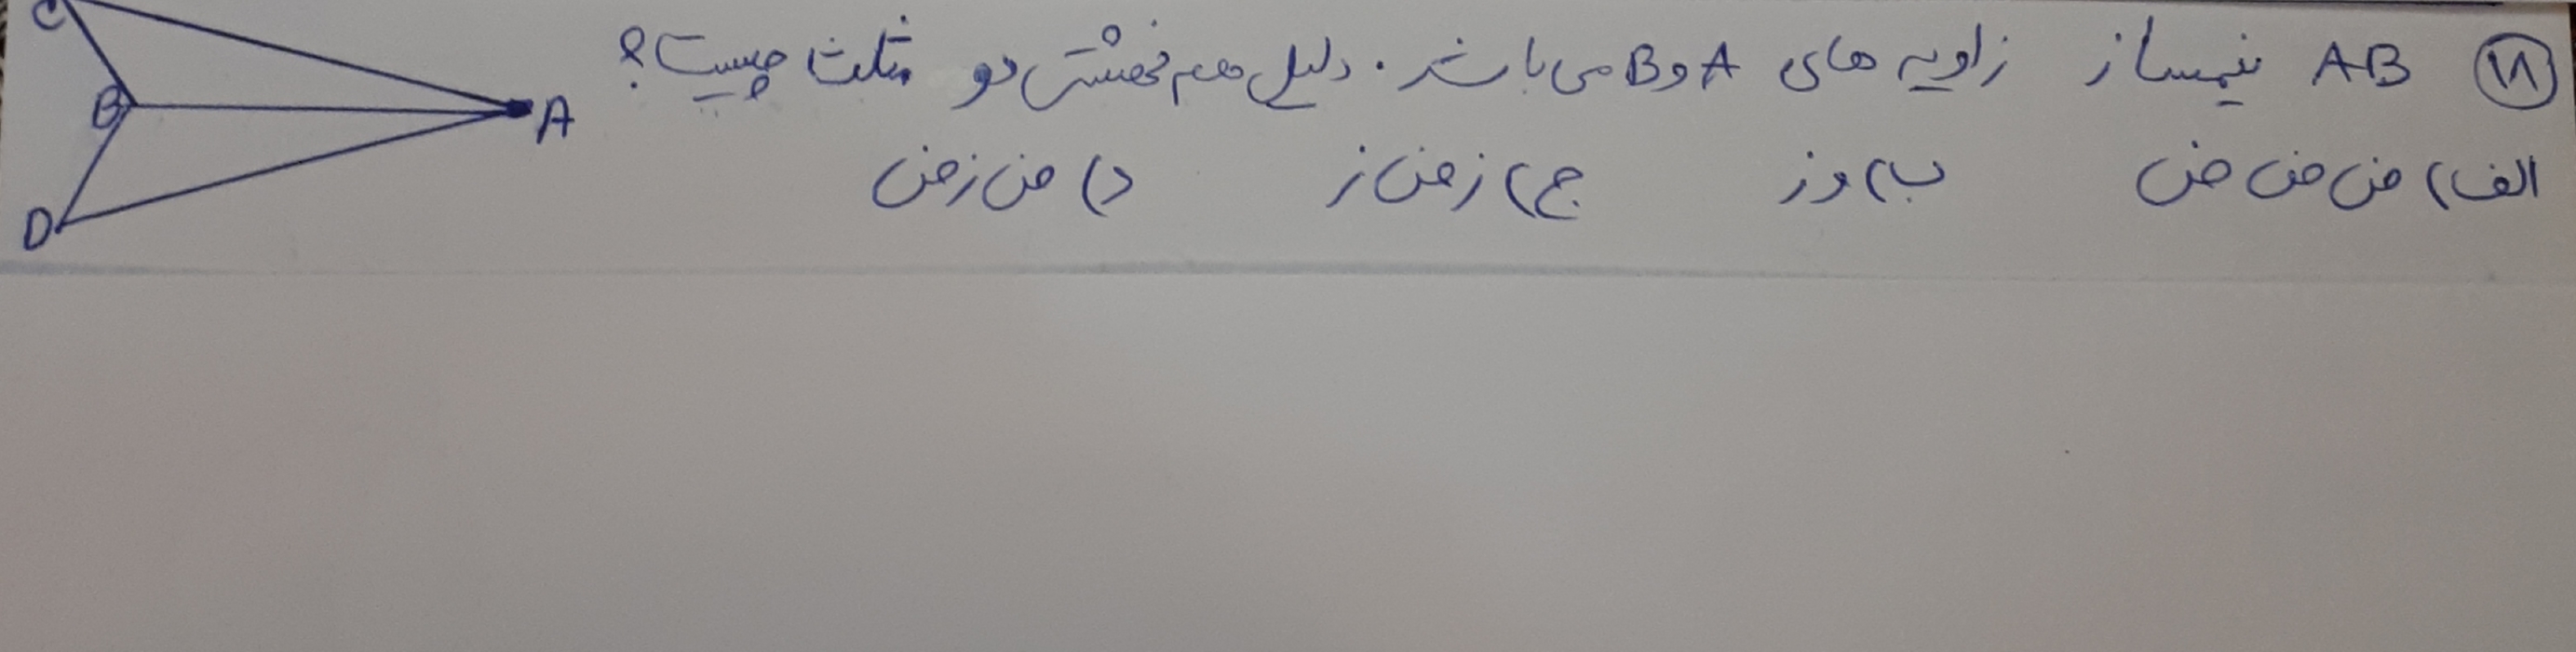 ۱۸ AB نیمساز زاویه های A و B می باشد. دلیل هم نهشتی دو مثلث چیست؟
الف) ض ض ض ب) و ز ج) ز ض ز د) ض ز ض
C
B
A
D